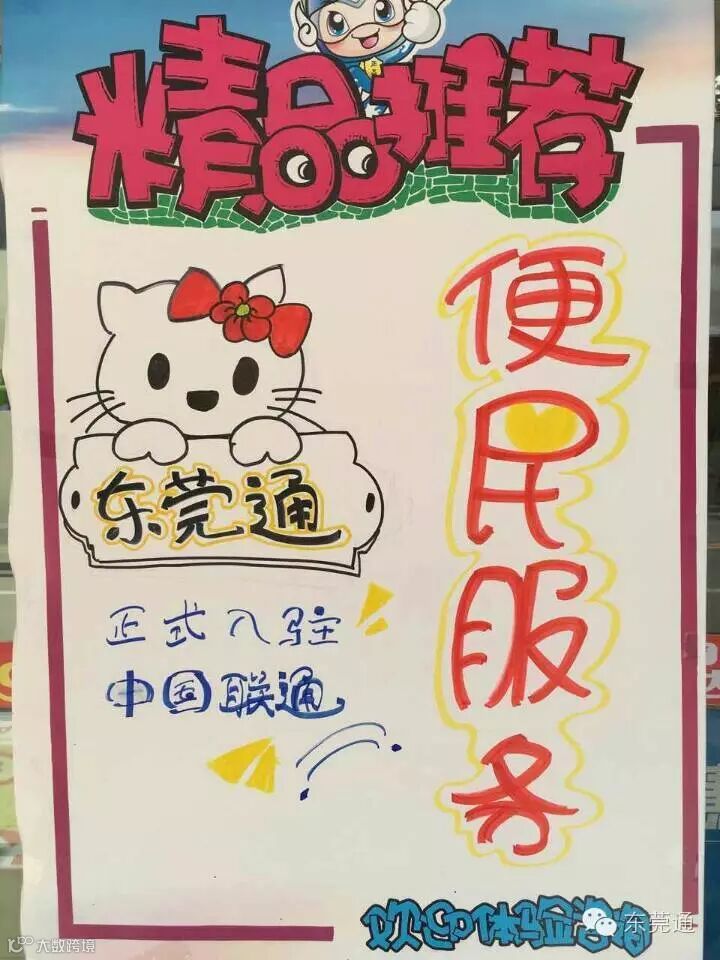 精品推荐
便民服务
东莞通
正式入驻
中国联通
欢迎体验咨询
东莞通
大数跨境